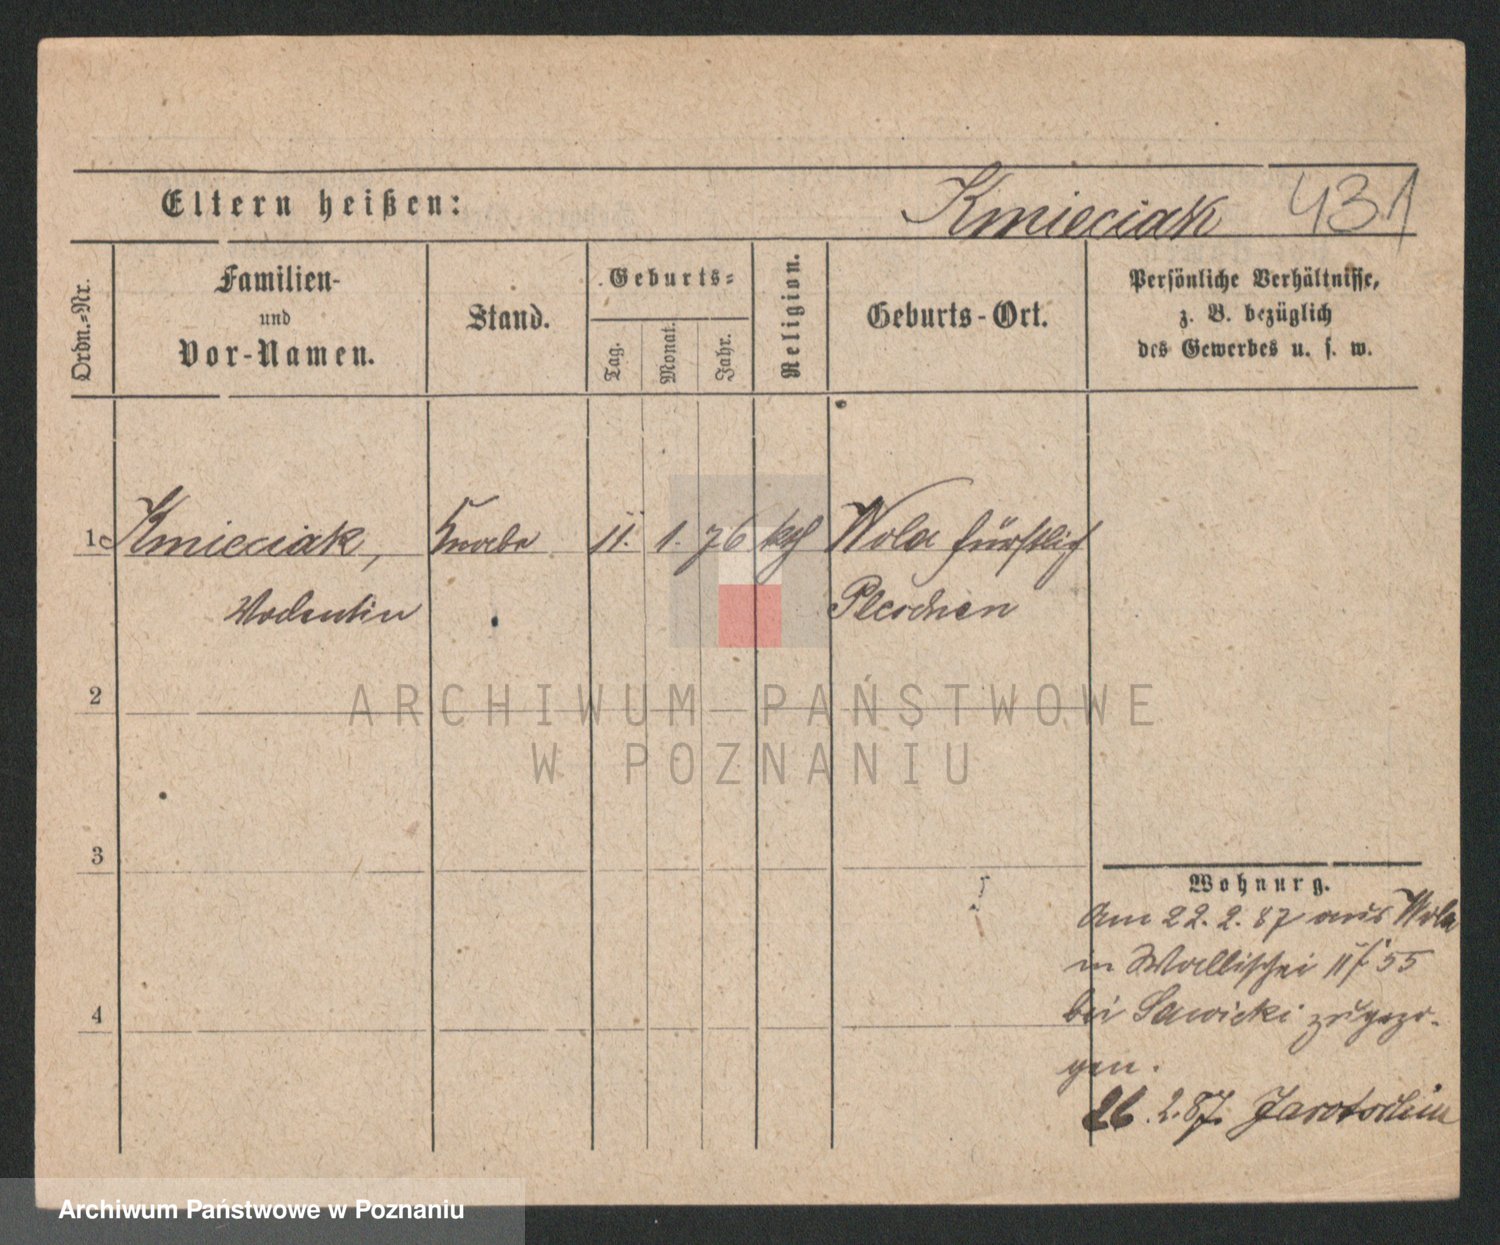 Eltern heißen: Kmieciak 431
Ordn.-Nr.
Familien-
und
Vor-Namen.
Stand.
Geburts-
Tag.
Monat.
Jahr.
Religion.
Geburts-Ort.
Persönliche Verhältnisse,
z. B. bezüglich
des Gewerbes u. s. w.
1 Kmieciak, Knabe 11. 1. 76 kth Wola fürstlich
Valentin Pleschen
2
ARCHIWUM PAŃSTWOWE
W POZNANIU
3
Wohnung.
Am 22. 2. 87 aus Wola
in Wallischei 55
4
bei Sawicki zugezo-
gen.
26. 2. 87. Jarotschin
Archiwum Państwowe w Poznaniu